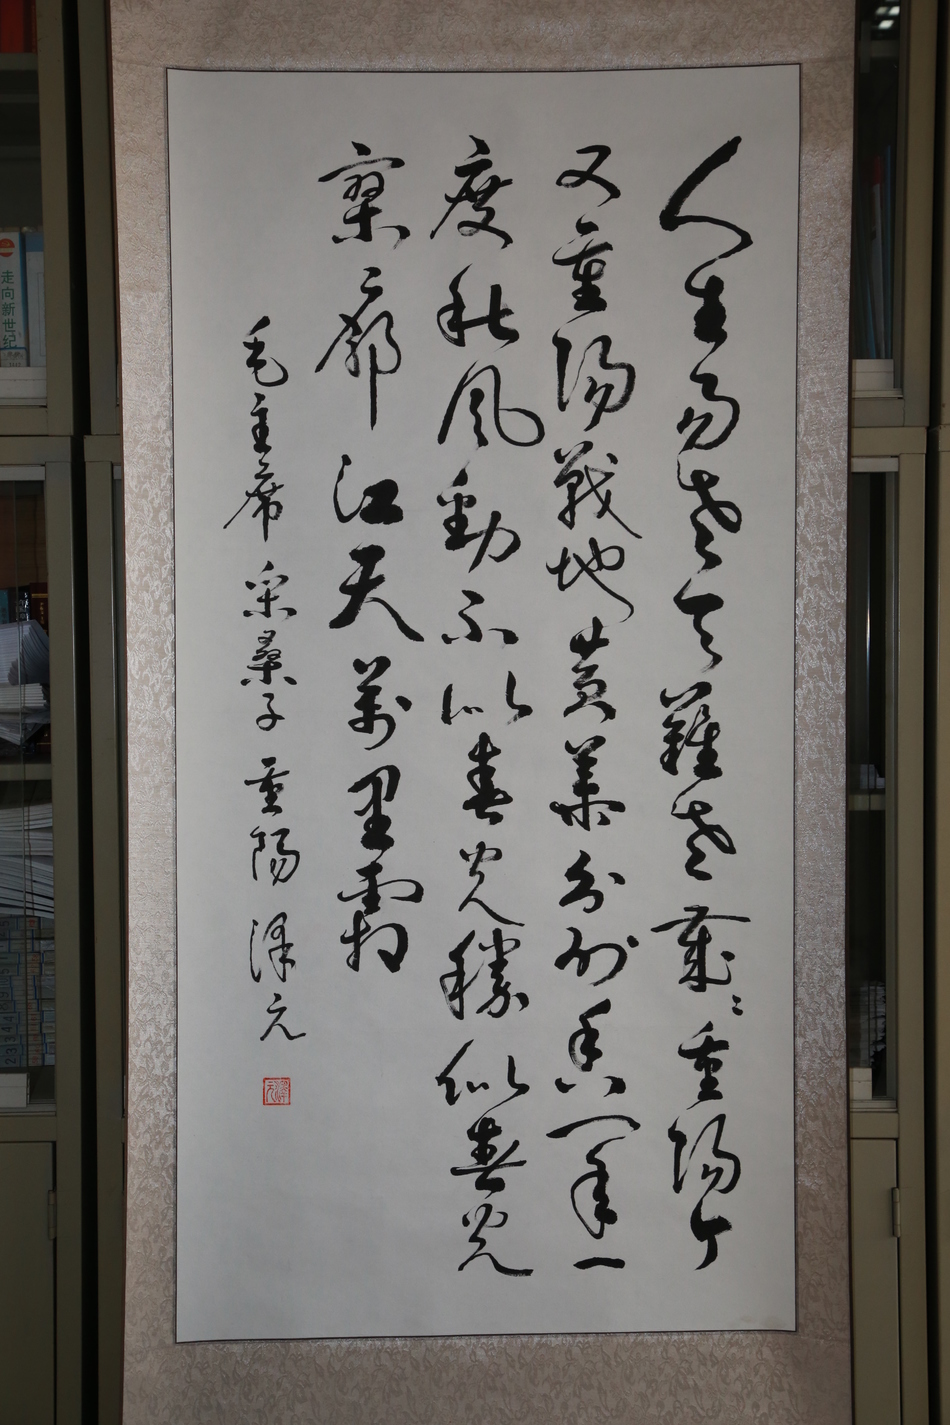 人生易老天難老歲々重陽今
又重陽戰地黃華分外香一年一
度秋風勁不似春光勝似春光
寥々廓江天萬里霜
毛主席 采桑子 重陽 澤元
走向新世纪